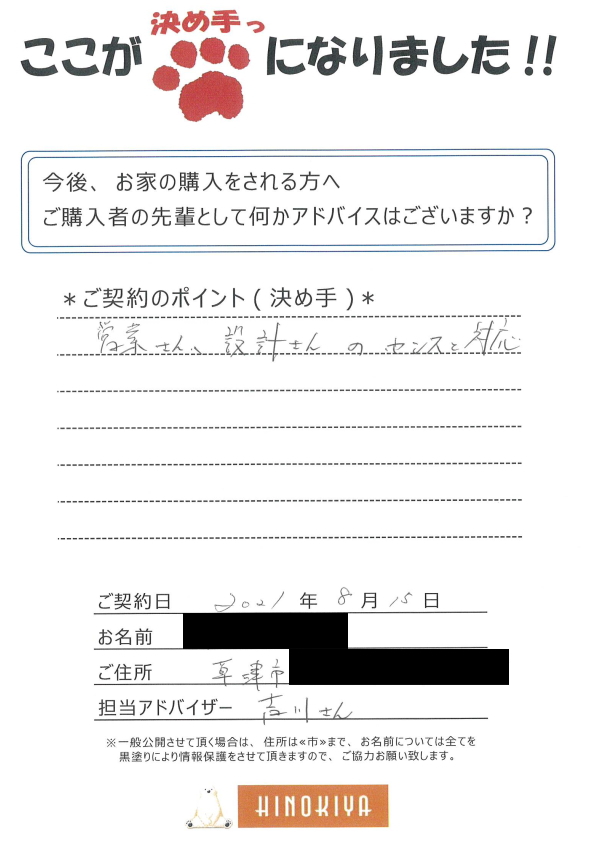 決め手っ
ここが になりました!!
今後、お家の購入をされる方へ
ご購入者の先輩として何かアドバイスはございますか？
＊ご契約のポイント(決め手)＊
営業さん、設計さんのセンスと対応
ご契約日 2021年8月15日
お名前
ご住所 草津市
担当アドバイザー 吉川さん
※一般公開させて頂く場合は、住所は≪市≫まで、お名前については全てを
黒塗りにより情報保護をさせて頂きますので、ご協力お願い致します。
HINOKIYA